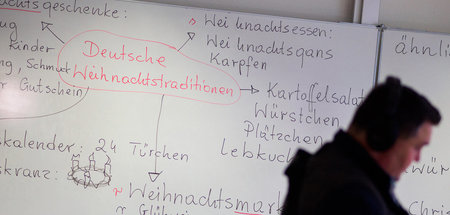 achtsgeschenke:
ug
Kinder
ng, Schmuck
r Gutschein
Deutsche
Weihnachtstraditionen
Weihnachtsessen:
Weihnachtsgans
Karpfen
Kartoffelsalat
Würstchen
Plätzchen
Lebkuc
skalender: 24 Türchen
skranz:
Weihnachtsmar
ähnli
wür
Chri